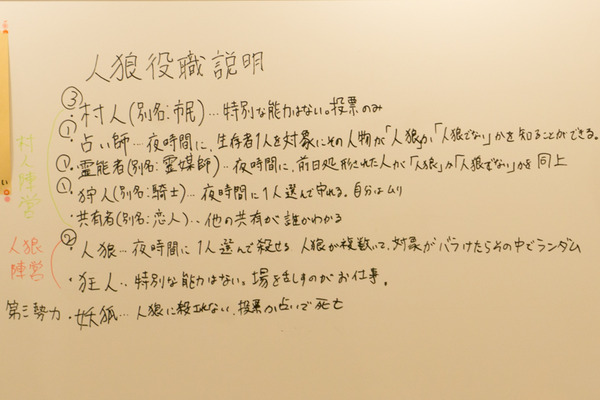 人狼役職説明
③
・村人(別名:市民)…特別な能力はない。投票のみ
①
・占い師…夜時間に、生存者1人を対象にその人物が「人狼」か「人狼でない」かを知ることができる。
①
・霊能者(別名:霊媒師)…夜時間に、前日処刑された人が「人狼」か「人狼でない」かを 同上
①
・狩人(別名:騎士)…夜時間に1人選んで守れる。自分はムリ
・共有者(別名:恋人)…他の共有が誰かわかる
村人陣営
②
・人狼…夜時間に1人選んで殺せる 人狼が複数いて、対象がバラけたらその中でランダム
・狂人…特別な能力はない。場を乱すのがお仕事。
人狼
陣営
第三勢力・妖狐…人狼に殺されない、投票か占いで死亡